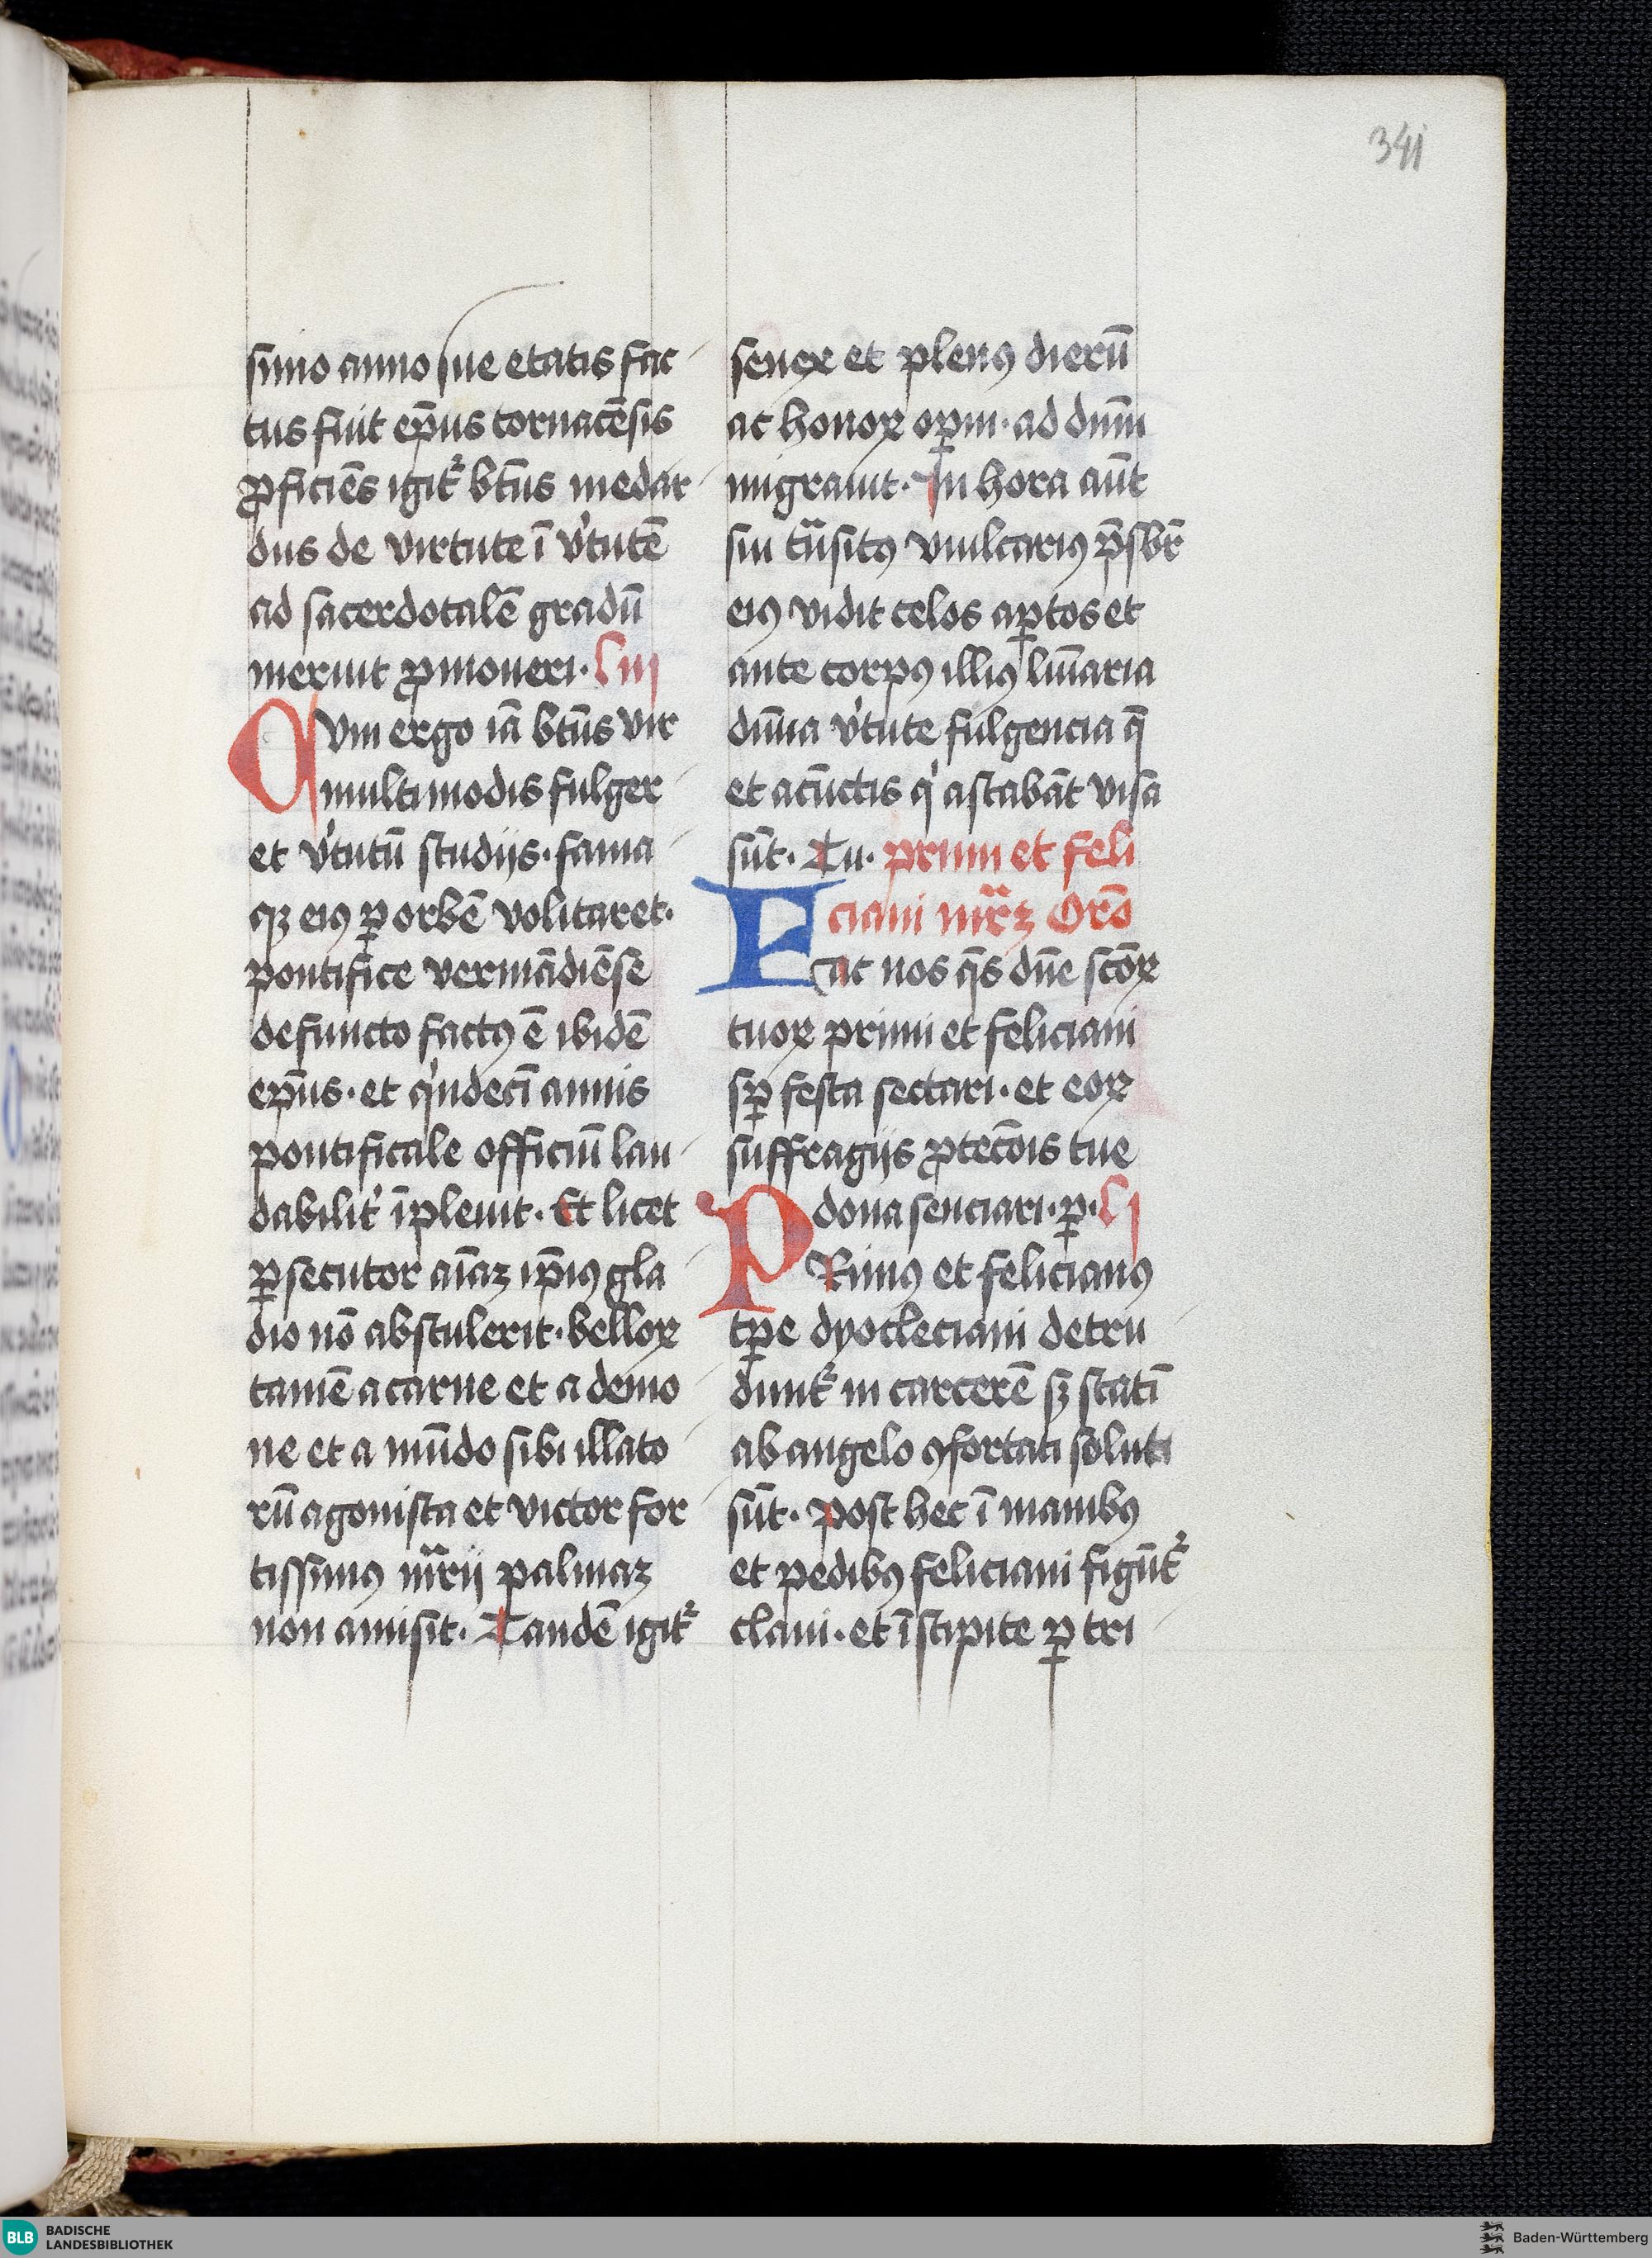 341
simo anno sue etatis fac
tus fuit ep̄us tornacēsis
ꝓficiēs igit᷑ bt̄us medar
dus de virtute ī v̓tutē
ad sacerdotalē gradū
meruit ꝓmoueri. L iij
Qvm ergo iā bt̄us vir
multimodis fulger
et v̓tutū studijs. fama
qꝫ eiꝰ ꝑ orbē volitaret.
pontifice vermādiēse
defuncto factꝰ ē ibidē
ep̄us. et qͥndecī annis
pontificale officiū lau
dabilit̓ īpleuit. Et licet
ꝑsecutor aīaꝫ ip̄iꝰ gla
dio nō abstulerit. belloꝝ
tamē a carne et a demo
ne et a mūdo sibi illato
rū agonista et victor for
tissimꝰ mr̄ij palmaꝫ
non amisit. Tandē igit᷑
senex et plenꝰ dierū
ac honoꝝ oꝑm. ad dnm̄
migrauit. In hora aūt
sui tn̄sitꝰ vulcariꝰ p̄sbr̄
eiꝰ vidit celos aꝑtos et
ante corpꝰ illiꝰ lum̄aria
diūna v̓tute fulgencia q̄
et a cūctis qͥ astabāt visa
sūt. Tu. primi et feli
ciani mr̄ꝫ Orō
Fac nos q̄s dn̄e scōꝝ
tuoꝝ primi et feliciani
sꝑ festa sectari. et eoꝝ
suffragijs ꝓtecc̄ois tue
dona senciari. ꝑ. L j
PRimꝰ et felicianꝰ
tꝑe dyocleciani detru
dunt᷑ in carcerē sꝫ statī
ab angelo ꝯfortati soluti
sūt. Post hec ī manibꝰ
et pedibꝰ feliciani figūt᷑
claui. et ī stipite ꝑ tri
BLB BADISCHE
LANDESBIBLIOTHEK
Baden-Württemberg